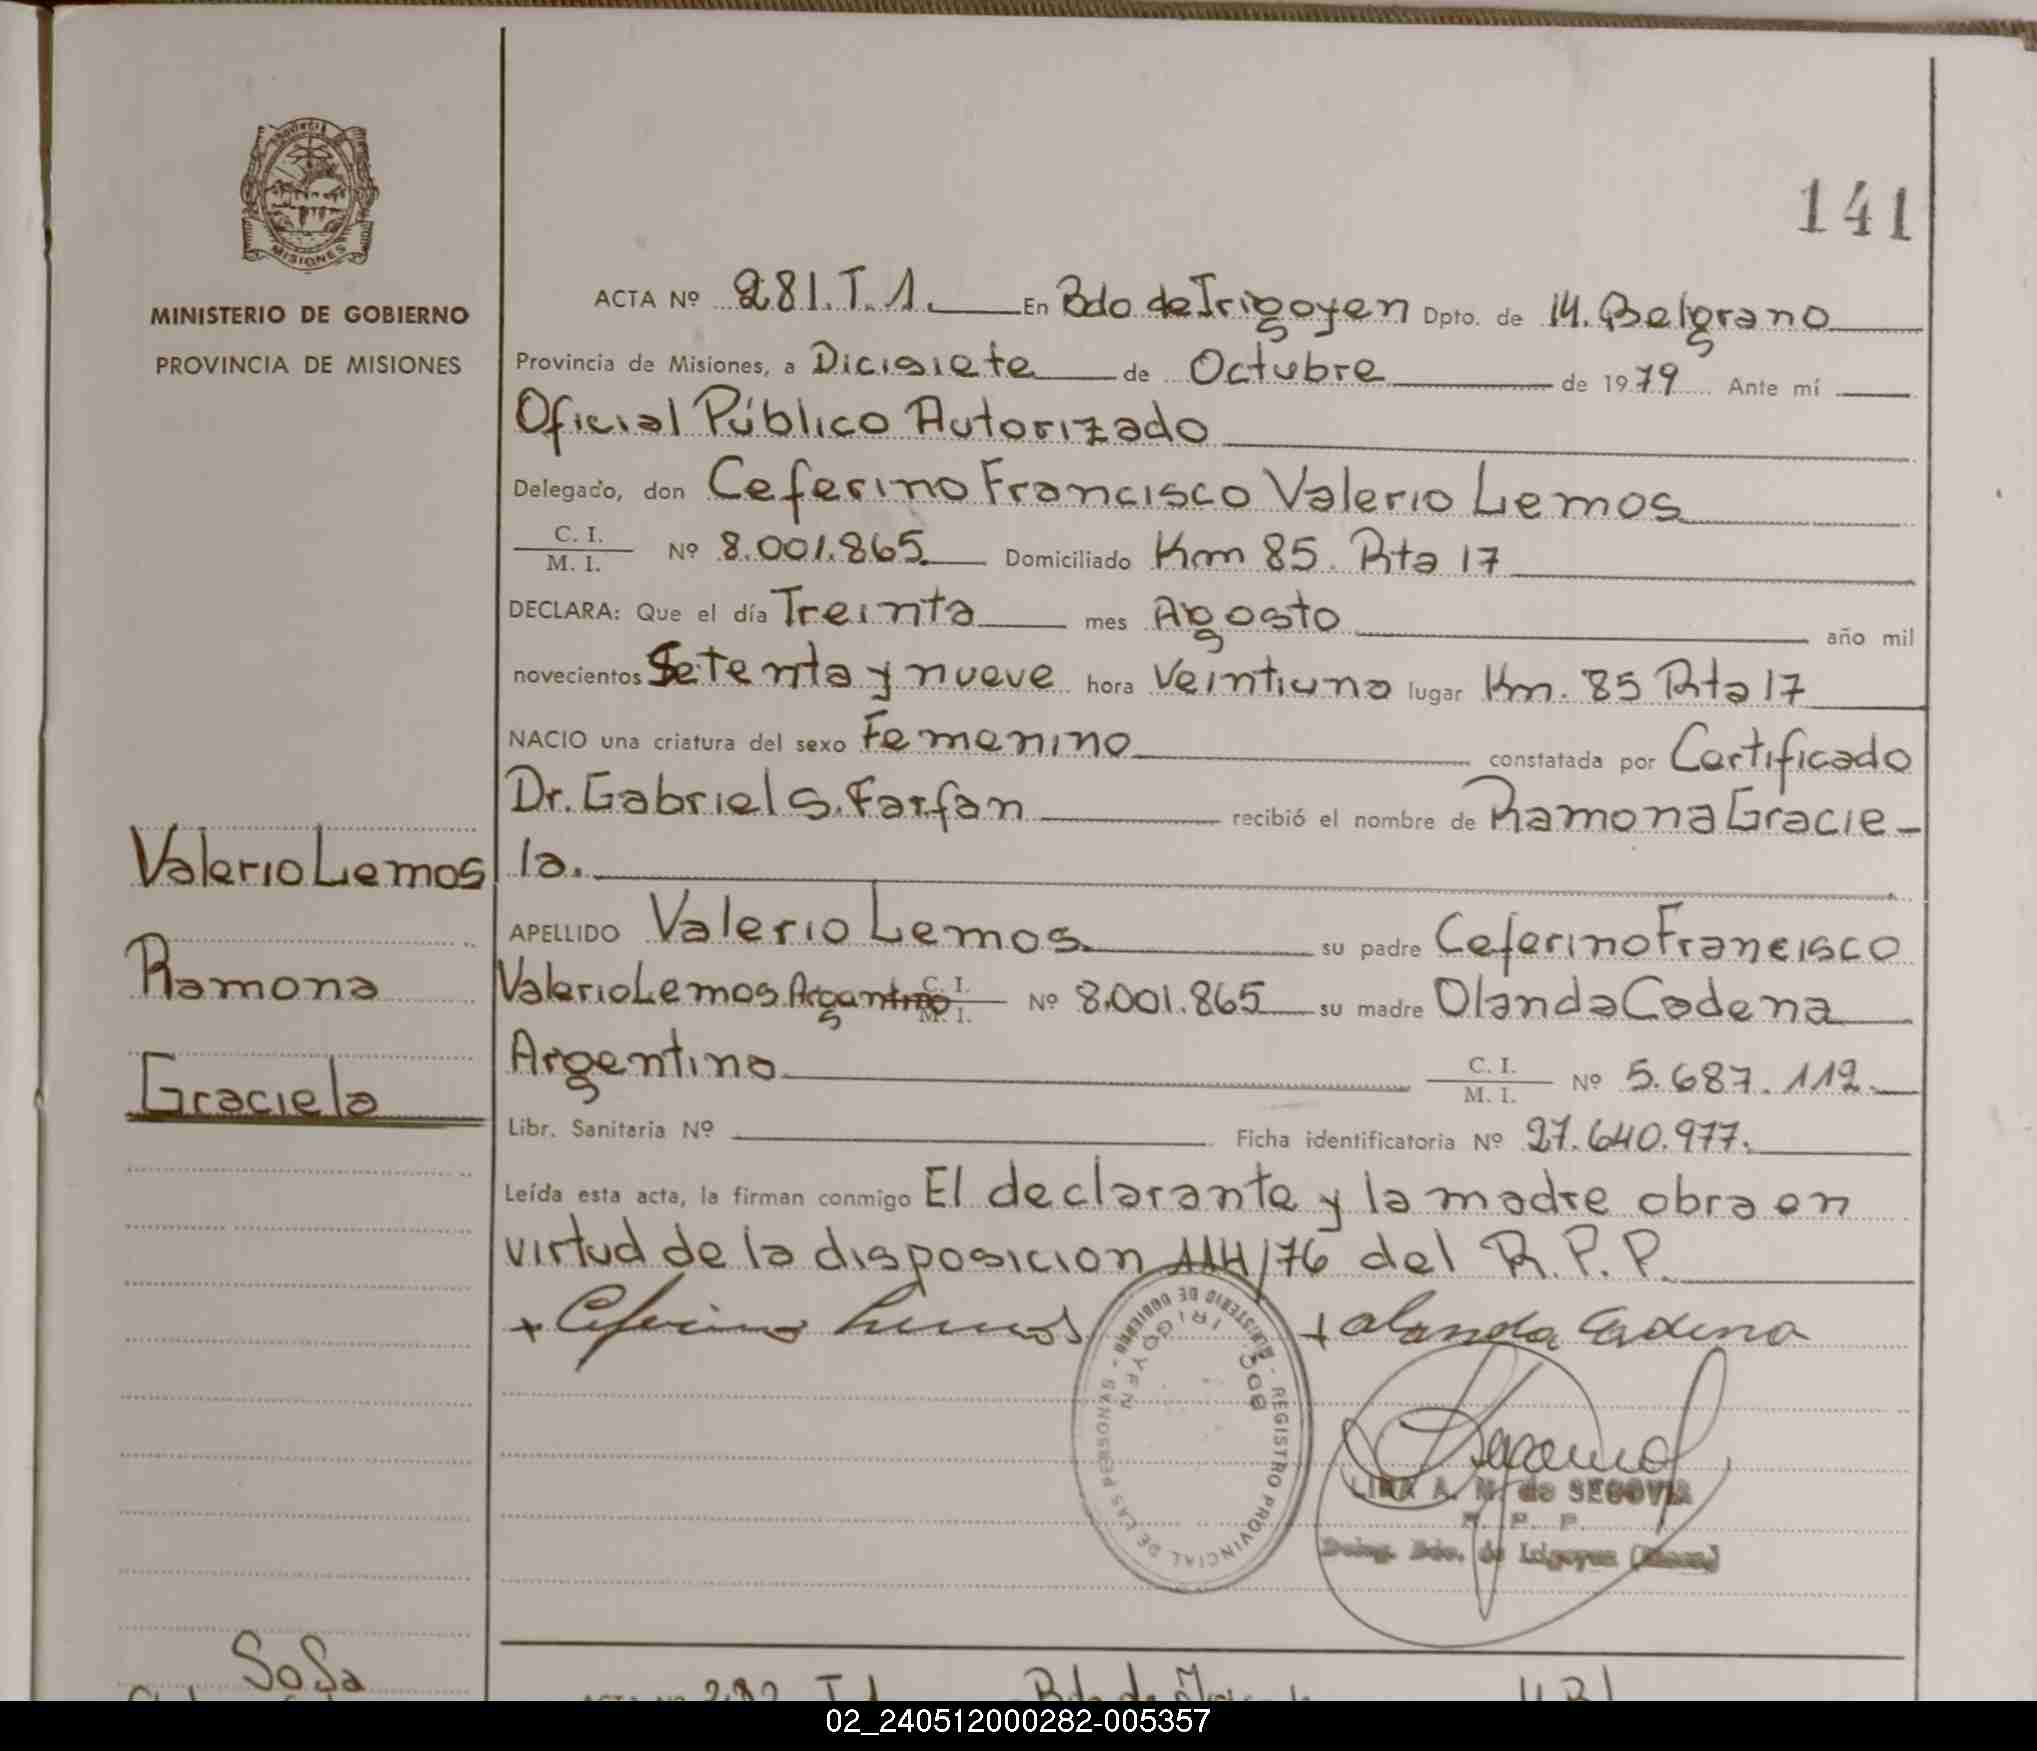 PROVINCIA
MISIONES
MINISTERIO DE GOBIERNO
PROVINCIA DE MISIONES
Valerio Lemos
Ramona
Graciela
141
ACTA Nº 281. T. 1. En Bdo de Irigoyen Dpto. de M. Belgrano
Provincia de Misiones, a Dicisiete de Octubre de 1979 Ante mí
Oficial Público Autorizado
Delegado, don Ceferino Francisco Valerio Lemos
C. I.
M. I. Nº 8.001.865. Domiciliado Km 85. Rta 17
DECLARA: Que el día Treinta mes Agosto año mil
novecientos Setenta y nueve hora Veintiuna lugar Km. 85 Rta 17
NACIO una criatura del sexo Femenino constatada por Certificado
Dr. Gabriel S. Farfan recibió el nombre de Ramona Gracie-
la.
APELLIDO Valerio Lemos. su padre Ceferino Francisco
Valerio Lemos. Argentino C. I. M. I. Nº 8.001.865 su madre Olanda Cadena
Argentina C. I. M. I. Nº 5.687.112.
Libr. Sanitaria Nº Ficha identificatoria Nº 27.640.977.
Leída esta acta, la firman conmigo El declarante y la madre obra en
virtud de la disposicion 114/76 del R. P. P.
+ Ceferino Lemos + olanda Cadena
MINISTERIO DE GOBIERNO - REGISTRO PROVINCIAL DE LAS PERSONAS
BDO. IRIGOYEN
LIRA A. M. de SEGOVIA
R. P. P.
Deleg. Bdo. de Irigoyen (Mnes.)
Sosa
ACTA Nº 282 T. 1 Bdo de
02_240512000282-005357